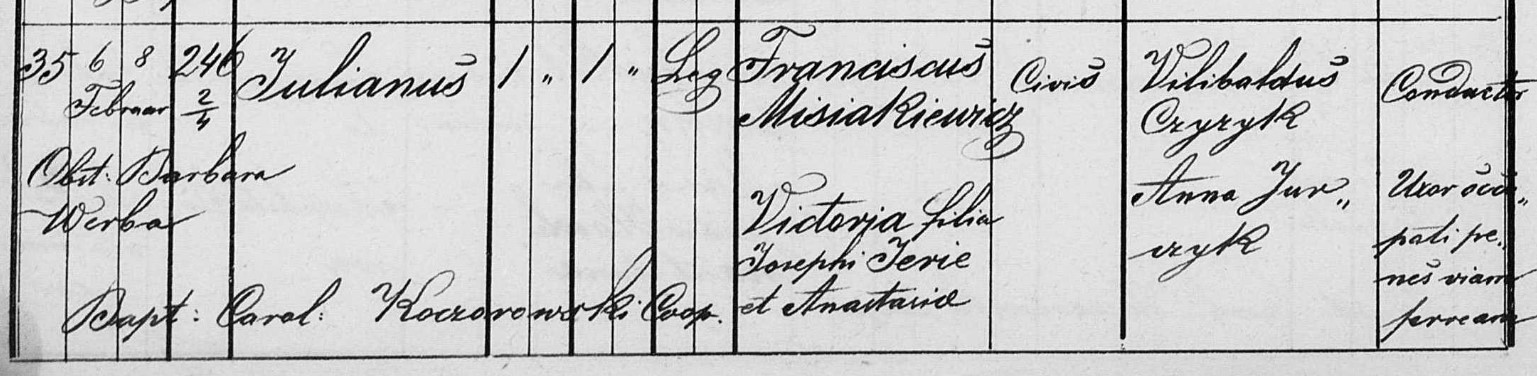 35 6 8 246 Julianus 1 " 1 " Leg Franciscus Civis Vilibaldus Conductor
Februar 2/4 Misiakiewicz Czyzyk
Obst: Barbara Anna Jur„ Uxor occu„
Werba Victoria filia czyk pati pe„
Josephi Jerie nes viam
Bapt: Carol: Koczorowski Coop. et Anastasiæ ferream